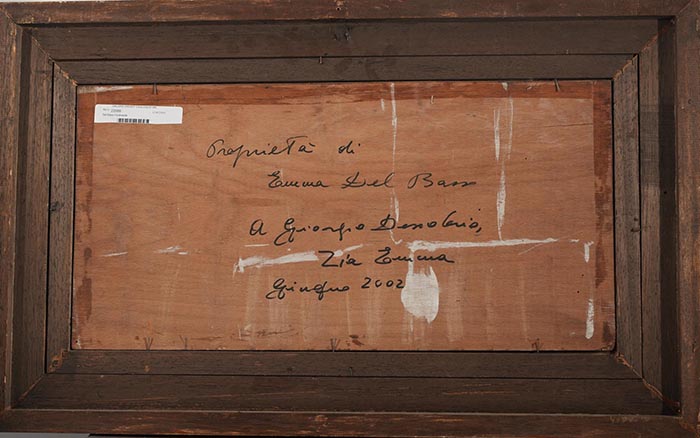 Proprietà di
Emma Del Bass
A Giorgio
Zia Emma
Giugno 2002